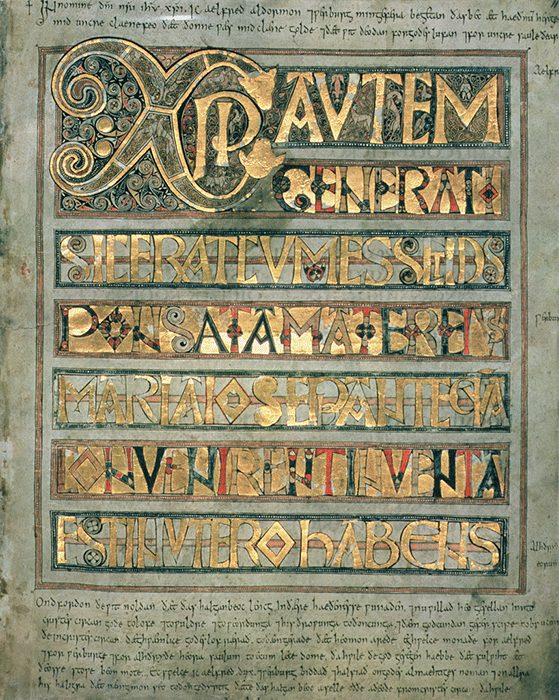 + In nomine dñi nr̄i ihu xpi. Ic aelfred aldormon ⁊ ƿerburg min gefera begetan ðas bec æt haeðnu herge
mid uncre claene feo ðæt ðonne ƿæs mid claene golde ⁊ ðæt ƿit deodan for godes lufan ⁊ for uncre saule ðearf
Aelfre
XPI AVTEM
GENERATI
SIC ERAT CVM ESSET DIS
PONSATA MATER EIVS
MARIA IOSEP ANTEQVĀ
CONVENIRENT INVENTA
EST IN VTERO HABENS
ƿerbur
Alhðryð
eorum
Ond forðon ðe ƿit noldan ðæt ðas halgan beoc lencg in ðære haeðenesse ƿunaden, ⁊ nu ƿillað heo gesellan inn to
cristes circan gode to lofe ⁊ to ƿuldre ⁊ to ƿeorðunga ⁊ his ðroƿunga to ðoncunga ⁊ ðæm godcundan geferscipe to brucenne
ðe in cristes circan dæghƿæmlice godes lof rærað, to ðæm gerade ðæt heo mon arede eghƿelce monaðe for aelfred
⁊ for ƿerburge ⁊ for alhðryðe heora saulum to ecum lecedome, ða hƿile ðe god gesegen haebbe ðæt fulƿiht æt
ðeosse stoƿe beon mote. Ec sƿelce ic aelfred dux ⁊ ƿerburg biddað ⁊ halsiað on godes almaehtiges noman ⁊ on allra
his haligra ðæt nænig mon seo to ðon gedyrstig ðætte ðas halgan beoc aselle oððe aðeode from cristes circan ða hƿile